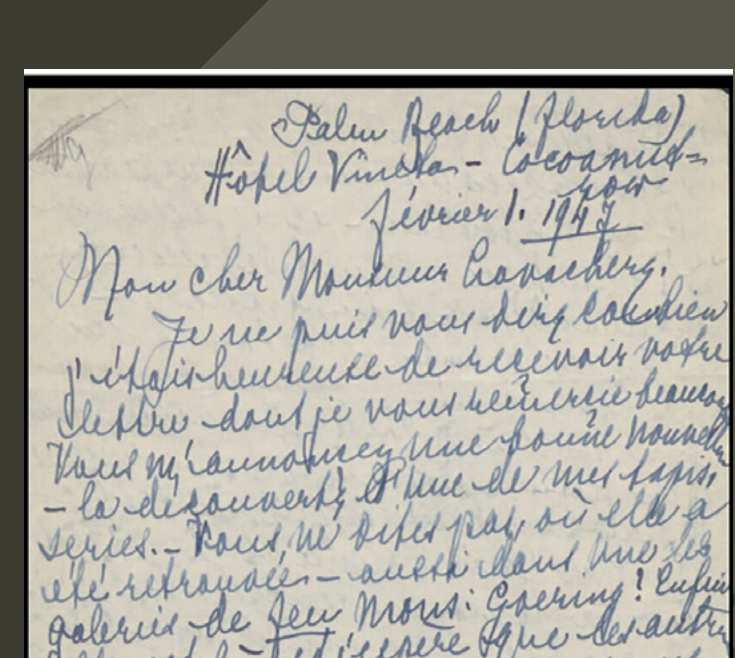 Palm Beach (Florida)
Hôtel Vineta - Cocoanut=
row
février 1. 1947
Mon cher Monsieur
Je ne puis vous dire combien
j'étais heureuse de recevoir votre
lettre dont je vous remercie beaucoup
Vous m'annoncez une bonne nouvelle
- la découverte d'une de mes tapis,
series. - Vous ne dites pas, où elle a
été retrouvée - aussi dans une des
galeries de feu Mons: Goering! Enfin
j'espère que les autres